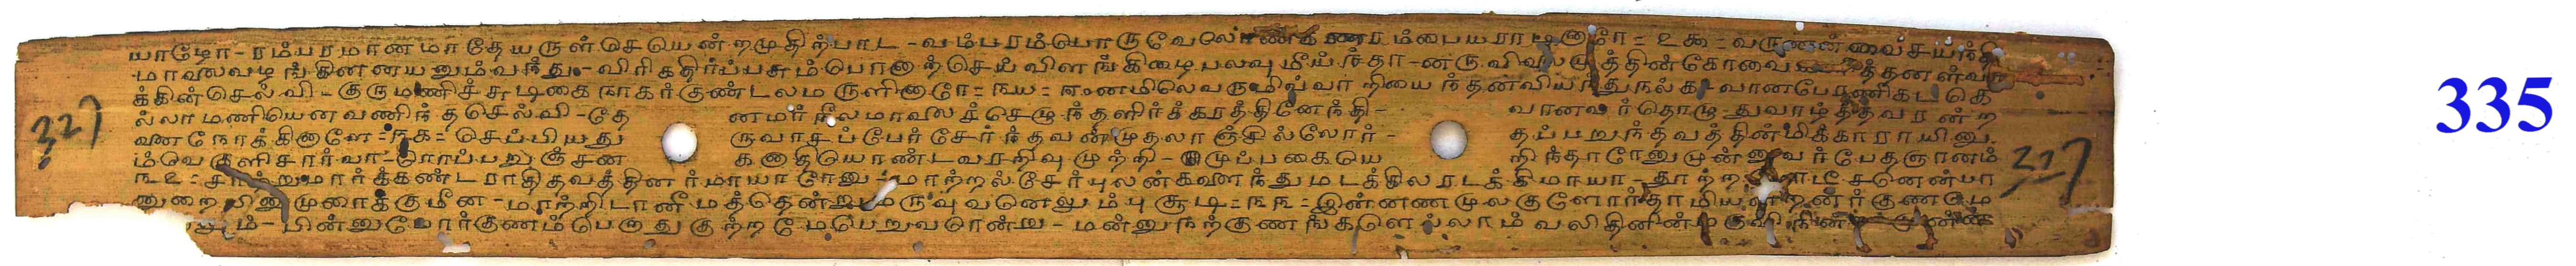 யாழோ - ரம்பரமானமாதேயருள்செயென்றமுதிற்பாட - வம்பரம்பொருவேலோ ரம்பையராடினாரோ = உ௯ = வருணன்வைச்சயந்தி
மாலைவழங்கினனயனும்வந்து - விரிகதிர்ப்பசும்பொனாற்செய் விளங்கிழைபலவுமீய்ந்தா - னருவி த்தின்கோவை த்தனள்வா
க்கின்செல்வி - குருமணிச்சுடிகைநாகர்குண்டலமருளினாரோ = ௩௰ = ஈனமிலெவருமிவ்வா றியைந்தனவியந்துநல்க - வானபேரணிகட கெ
ல்லாமணியெனவணிந்தசெல்வி - தே னமர்நீலமாலைச்செழுந்தளிர்க்கரத்தினேந்தி - வானவர்தொழுதுவாழ்த்தவரன்ற
னைநோக்கினாளே = ௩௧ = செப்பியது ருவாசப்பேர்சேர்ந்தவன்முதலாஞ்சில்லோர் - தப்பறுந்தவத்தின்மிக்காராயினு
ம்வெகுளிசார்வா - ரொப்பறுஞ்சன கனாதியொண்டவரறிவுமுற்றி - முப்பகையெ றிந்தாரேனுமுன்னுவர்பேதஞானம்
௩௨ = சாற்றுமார்க்கண்டராதிதவத்தினர்மாயாரேனு - மாற்றல்சேர்புலன்களைந்துமடக்கிலரடக்கிமாயா - தூற்ற சனென்பா
னுறையினுமுரைக்குமீன - மாற்றிடானீமத்தென்று மருவுவனெலும்பு சூடி = ௩௩ = இன்னணமுலகுளோர்தாமியன்றனர்குணமே
னும் - பின்னுமோர்குணம்பெறாதுகுற்றமேபெறுவரென்று - மன்னுநற்குணங்களெல்லாம்வலிதினின்
327
227
335